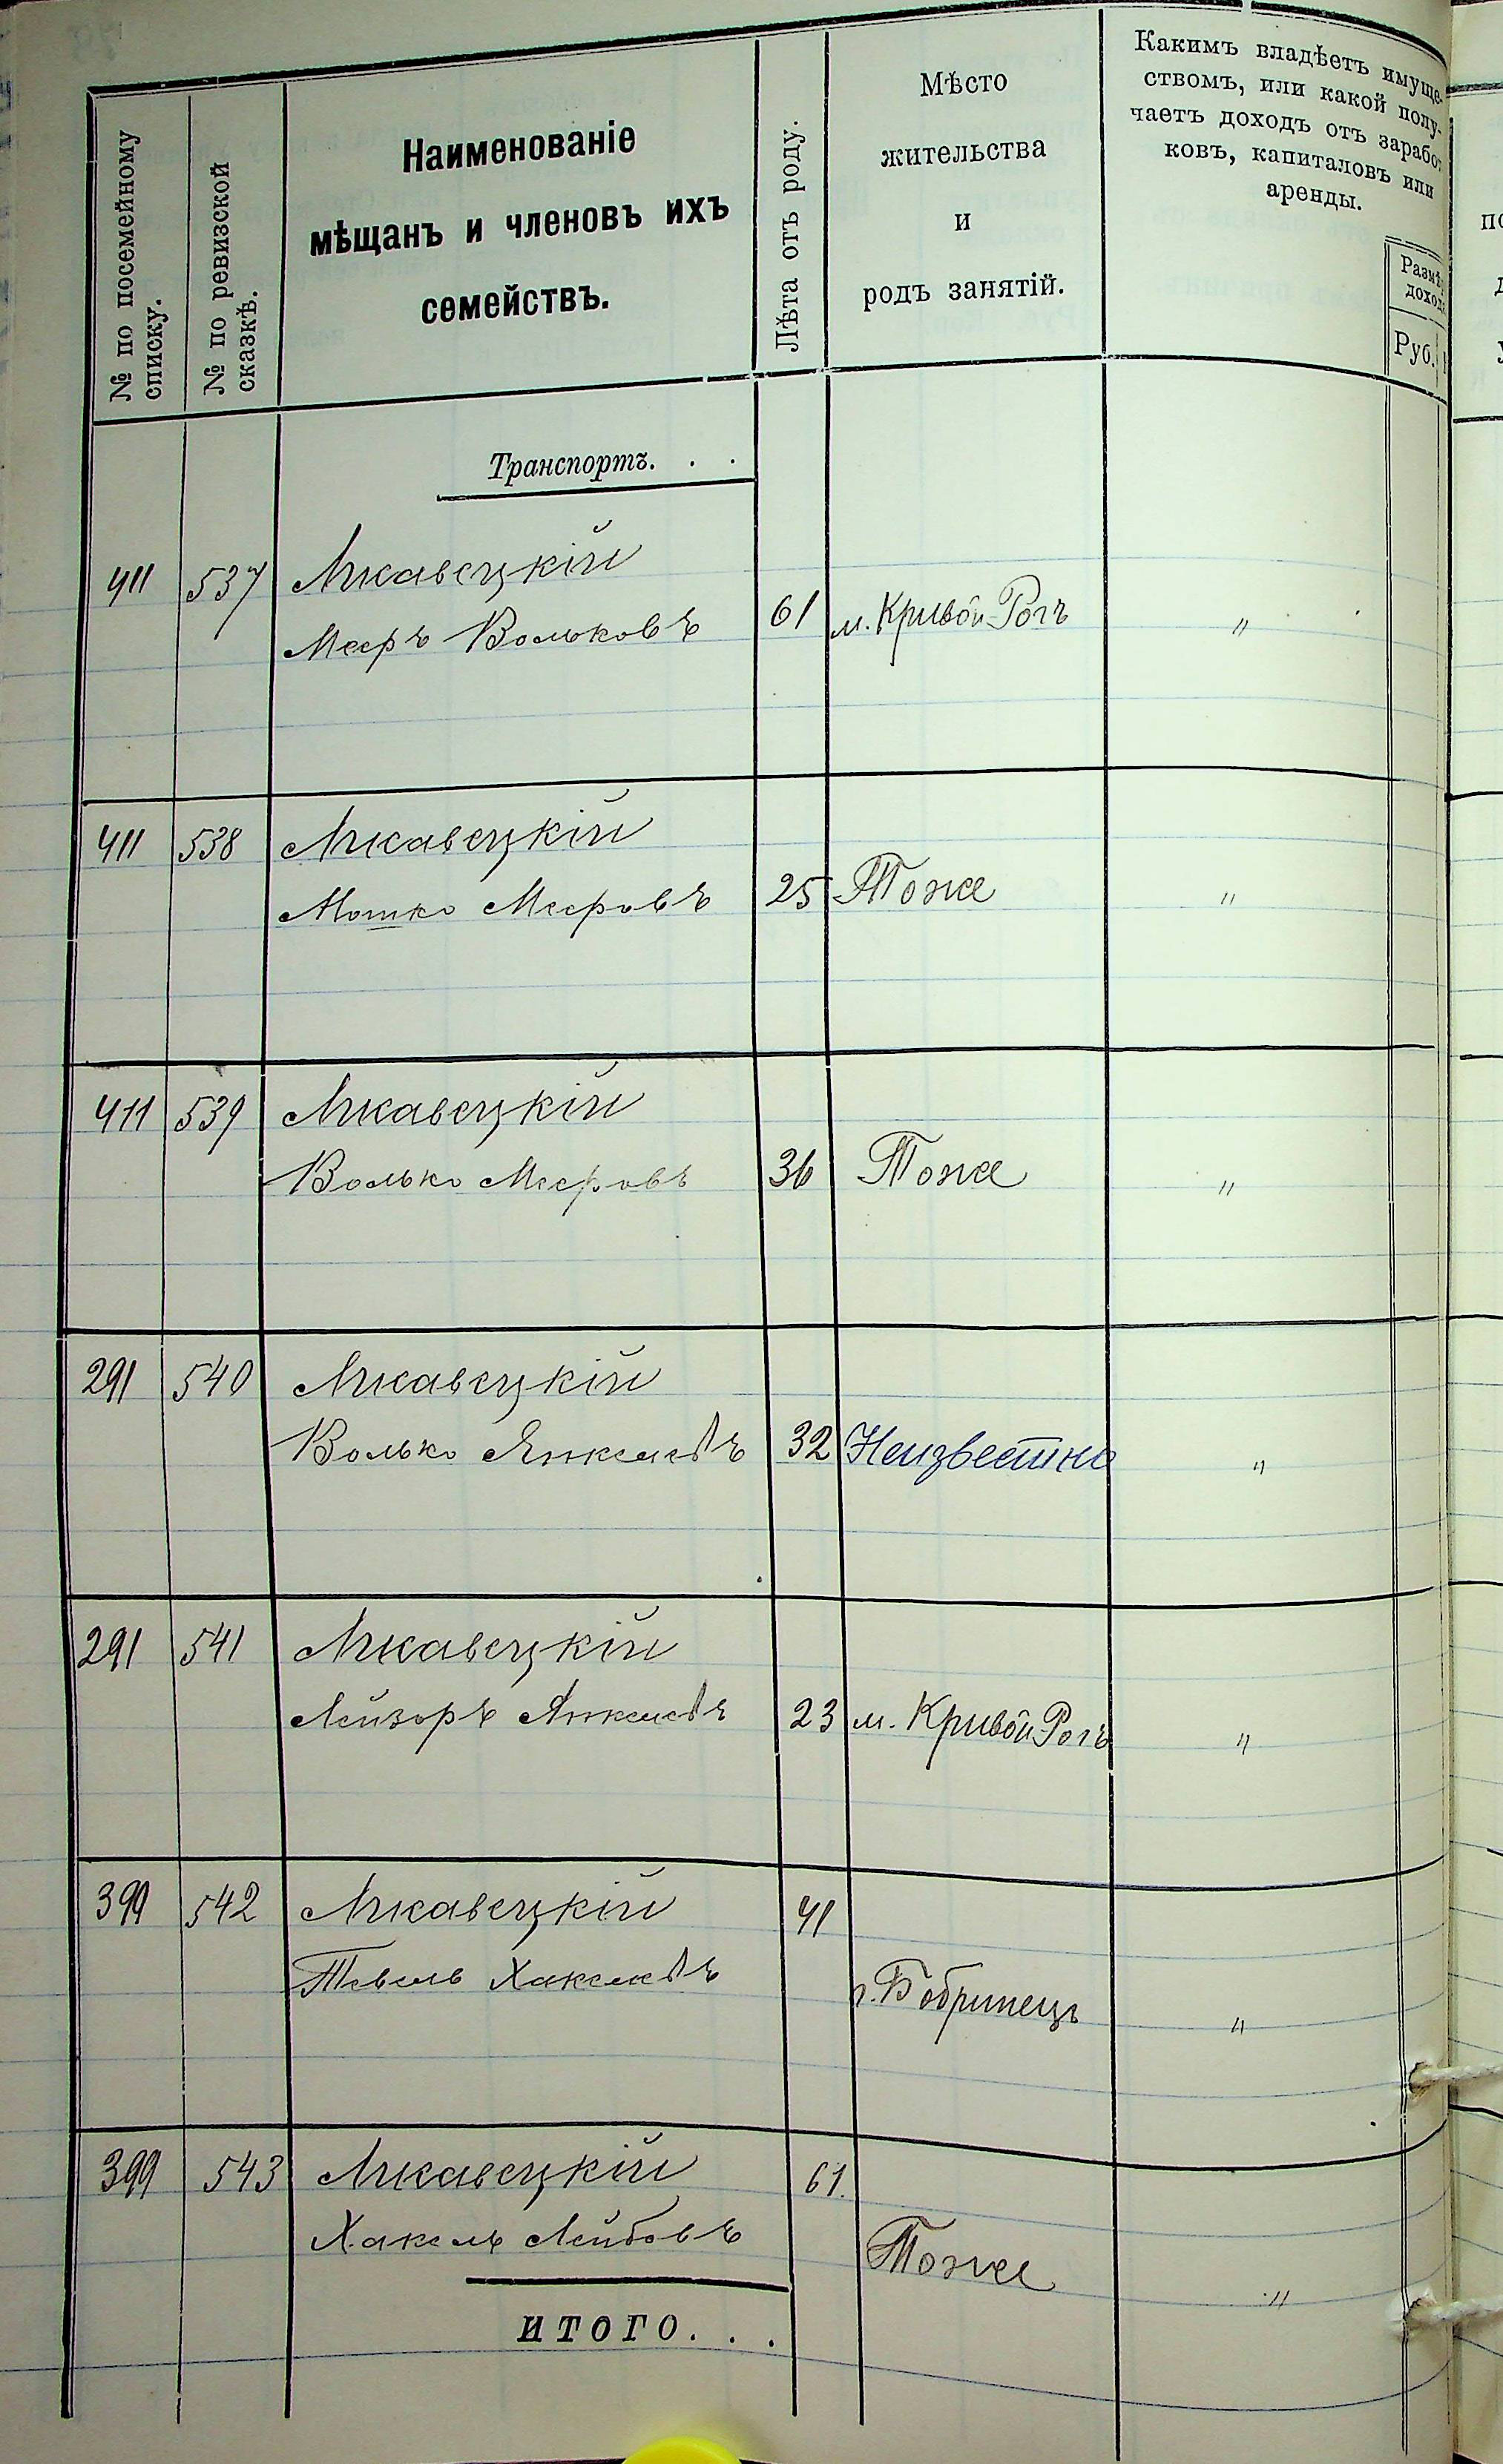 № по посемейному
списку.
№ по ревизской
сказкѣ.
Наименованіе
мѣщанъ и членовъ ихъ
семействъ.
Лѣта отъ роду.
Мѣсто
жительства
и
родъ занятій.
Какимъ владѣетъ имуще-
ствомъ, или какой полу-
чаетъ доходъ отъ зарабо-
ковъ, капиталовъ или
аренды.
Размѣ
доход
Руб.
Транспортъ. . .
411 537 Ликавецкій
Мееръ Вольковъ 61 м. Кривой-Рогъ "
411 538 Ликавецкій
Мошко Мееровъ 25 Тоже "
411 539 Ликавецкій
Волько Мееровъ 36 Тоже "
291 540 Ликавецкій
Волько Янкелевъ 32 Неизвестно "
291 541 Ликавецкій
Лейзоръ Янкелевъ 23 м. Кривой Рогъ "
399 542 Ликавецкій 41
Тевель Хакелевъ г. Бобринецъ "
399 543 Ликавецкій 61.
Хакель Лейбовъ Тоже "
ИТОГО. . .